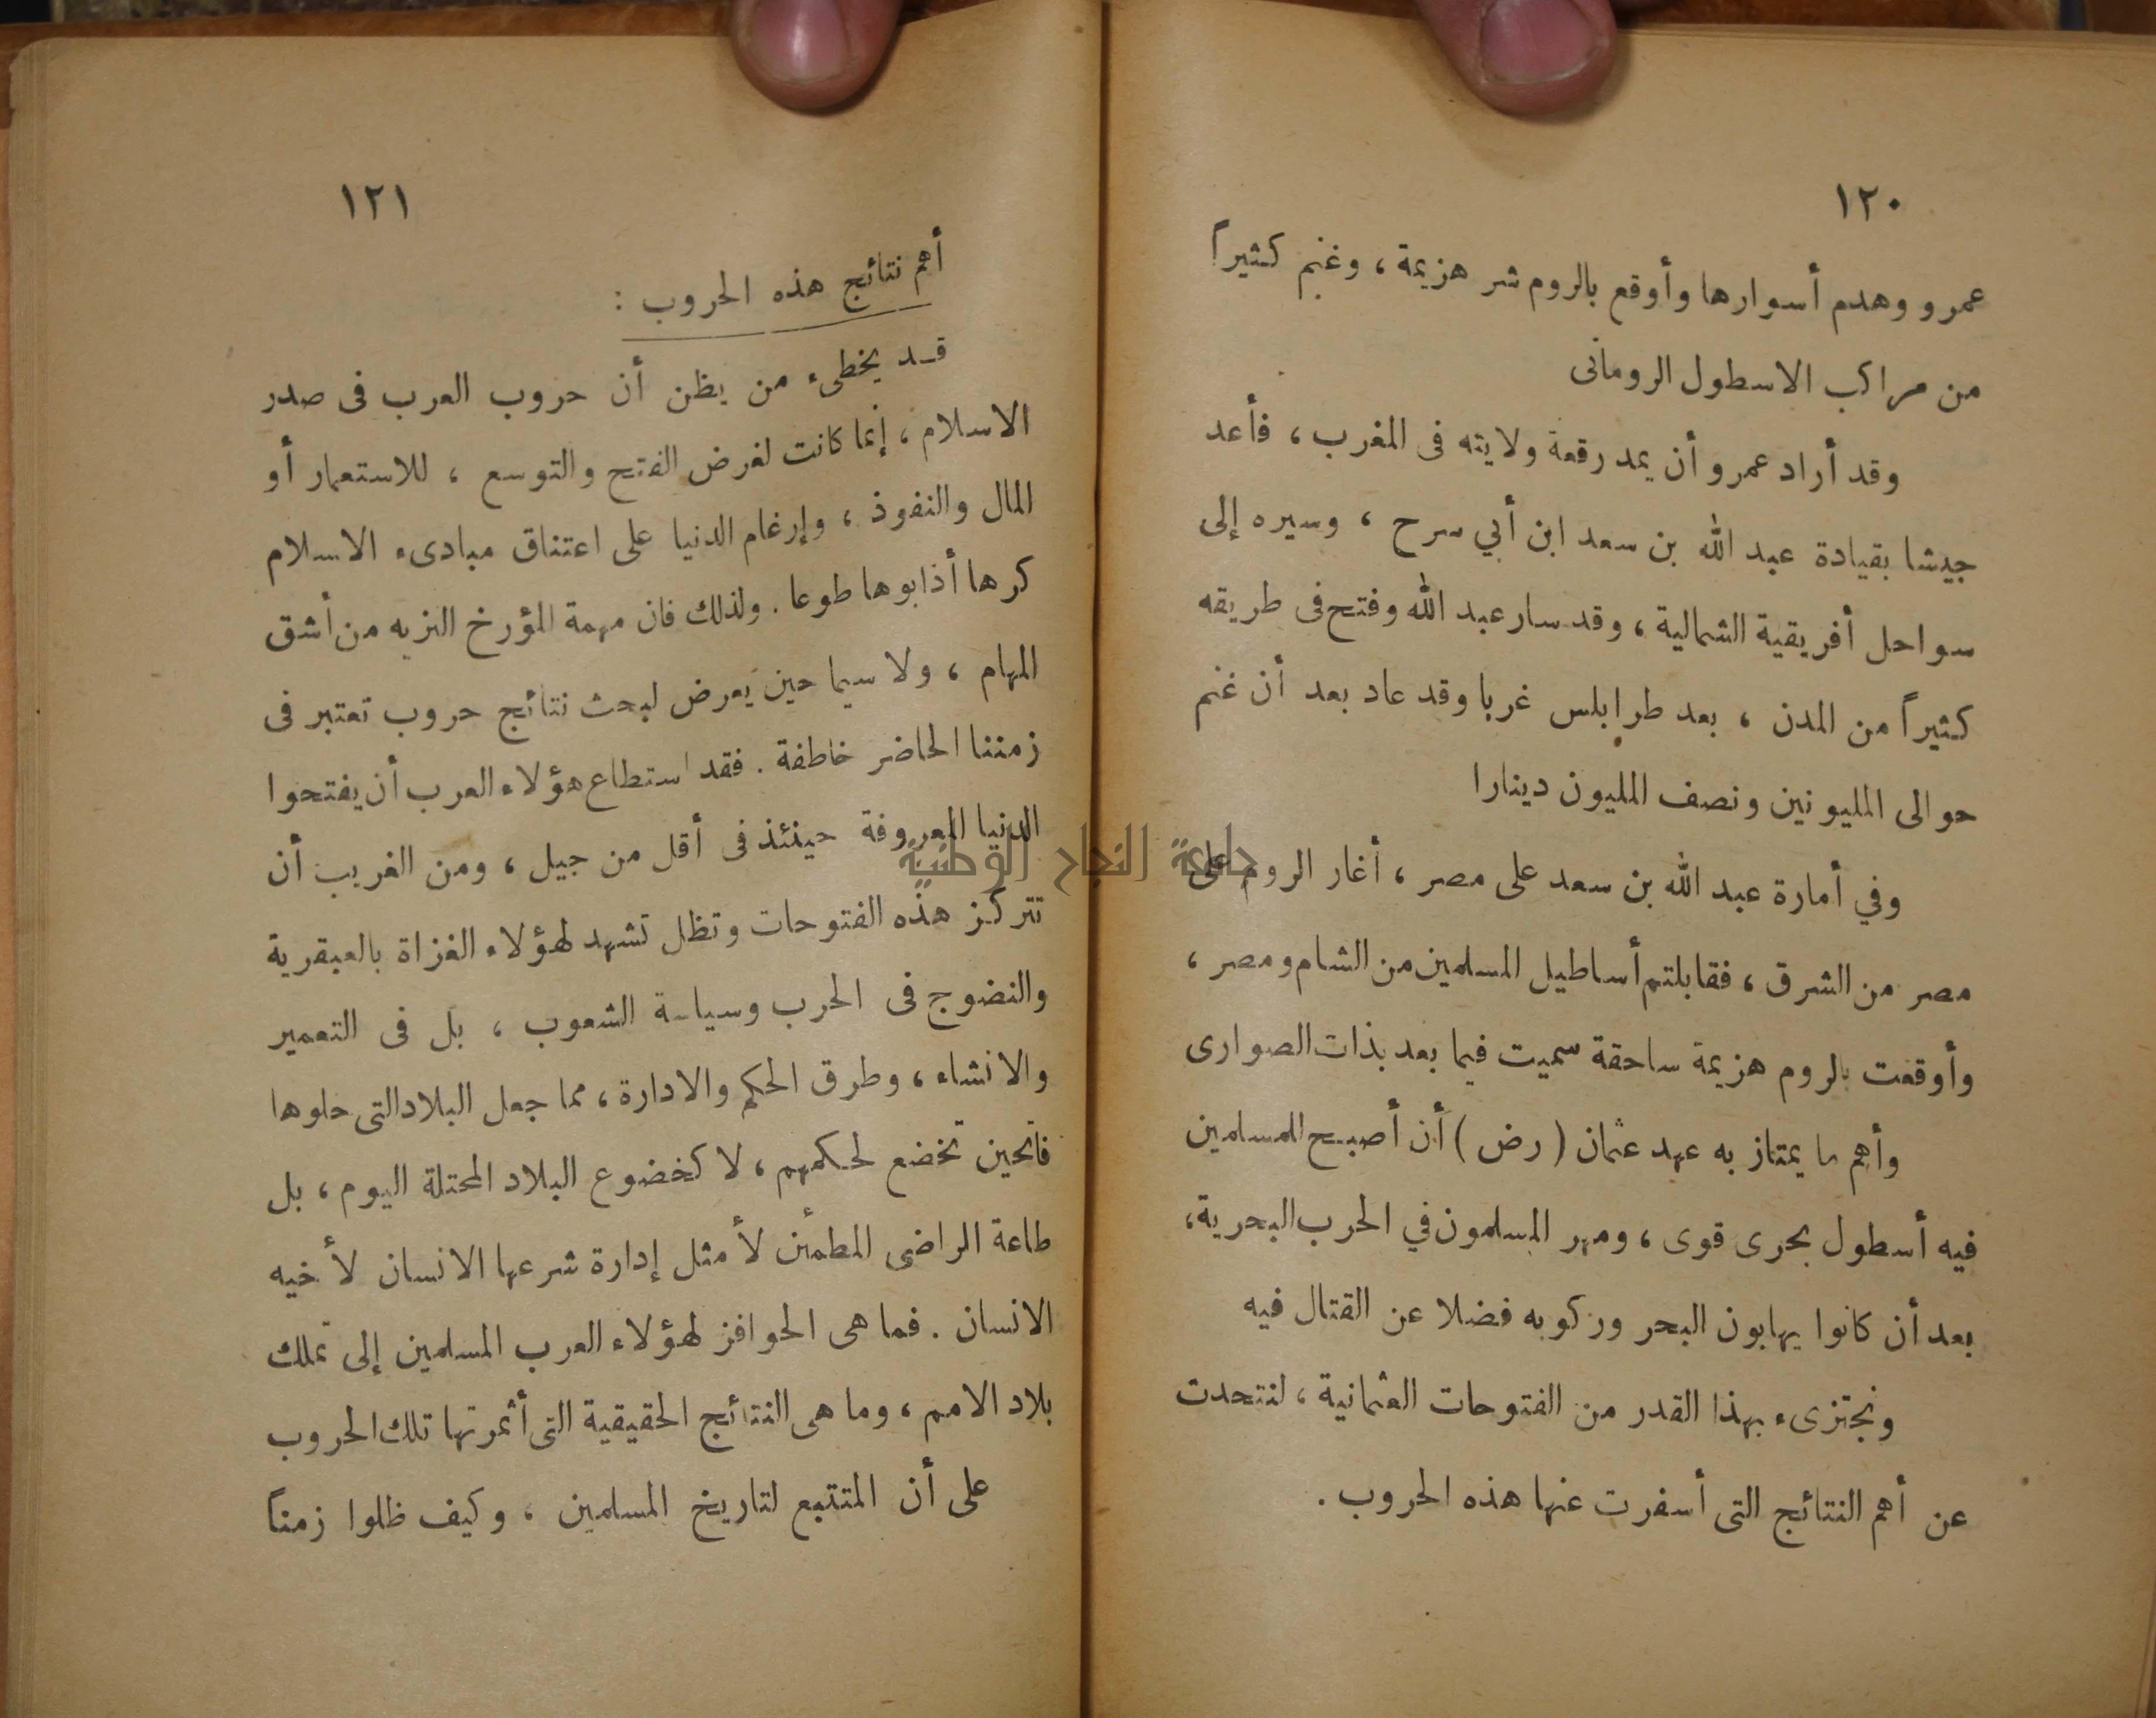 ١٢٠
عمرو وهدم أسوارها وأوقع بالروم شر هزيمة ، وغنم كثيراً
من مراكب الاسطول الرومانى
وقد أراد عمرو أن يمد رقعة ولايته فى المغرب ، فأعد
جيشا بقيادة عبد الله بن سعد ابن أبي سرح ، وسيره إلى
سواحل أفريقية الشمالية ، وقد سار عبد الله وفتح فى طريقه
كثيراً من المدن ، بعد طرابلس غربا وقد عاد بعد أن غنم
حوالى المليونين ونصف المليون دينارا
وفي أمارة عبد الله بن سعد على مصر ، أغار الروم على
مصر من الشرق ، فقابلتم أساطيل المسلمين من الشام ومصر ،
وأوقعت بالروم هزيمة ساحقة سميت فيما بعد بذات الصوارى
وأهم ما يمتاز به عهد عثمان ( رض ) أن أصبح للمسلمين
فيه أسطول بحرى قوى ، ومهر المسلمون في الحرب البحرية ،
بعد أن كانوا يهابون البحر وركوبه فضلا عن القتال فيه
ونجتزىء بهذا القدر من الفتوحات العثمانية ، لنتحدث
عن أهم النتائج التى أسفرت عنها هذه الحروب .
١٢١
أهم نتائج هذه الحروب :
قد يخطىء من يظن أن حروب العرب فى صدر
الاسلام ، إنما كانت لغرض الفتح والتوسع ، للاستعمار أو
المال والنفوذ ، وإرغام الدنيا على اعتناق مبادىء الاسلام
كرها أذابوها طوعا . ولذلك فان مهمة المؤرخ النزيه من أشق
المهام ، ولا سيما حين يعرض لبحث نتائج حروب تعتبر فى
زمننا الحاضر خاطفة . فقد استطاع هؤلاء العرب أن يفتحوا
الدنيا المعروفة حينئذ فى أقل من جيل ، ومن الغريب أن
تتركز هذه الفتوحات وتظل تشهد لهؤلاء الغزاة بالعبقرية
والنضوج فى الحرب وسياسة الشعوب ، بل فى التعمير
والانشاء ، وطرق الحكم والادارة ، مما جعل البلاد التى حلوها
فاتحين تخضع لحكمهم ، لا كخضوع البلاد المحتلة اليوم ، بل
طاعة الراضى المطمئن لأمثل إدارة شرعها الانسان لأخيه
الانسان . فما هى الحوافز لهؤلاء العرب المسلمين إلى تملك
بلاد الامم ، وما هى النتائج الحقيقية التى أثمرتها تلك الحروب
على أن المتتبع لتاريخ المسلمين ، وكيف ظلوا زمناً
جامعة النجاح الوطنية